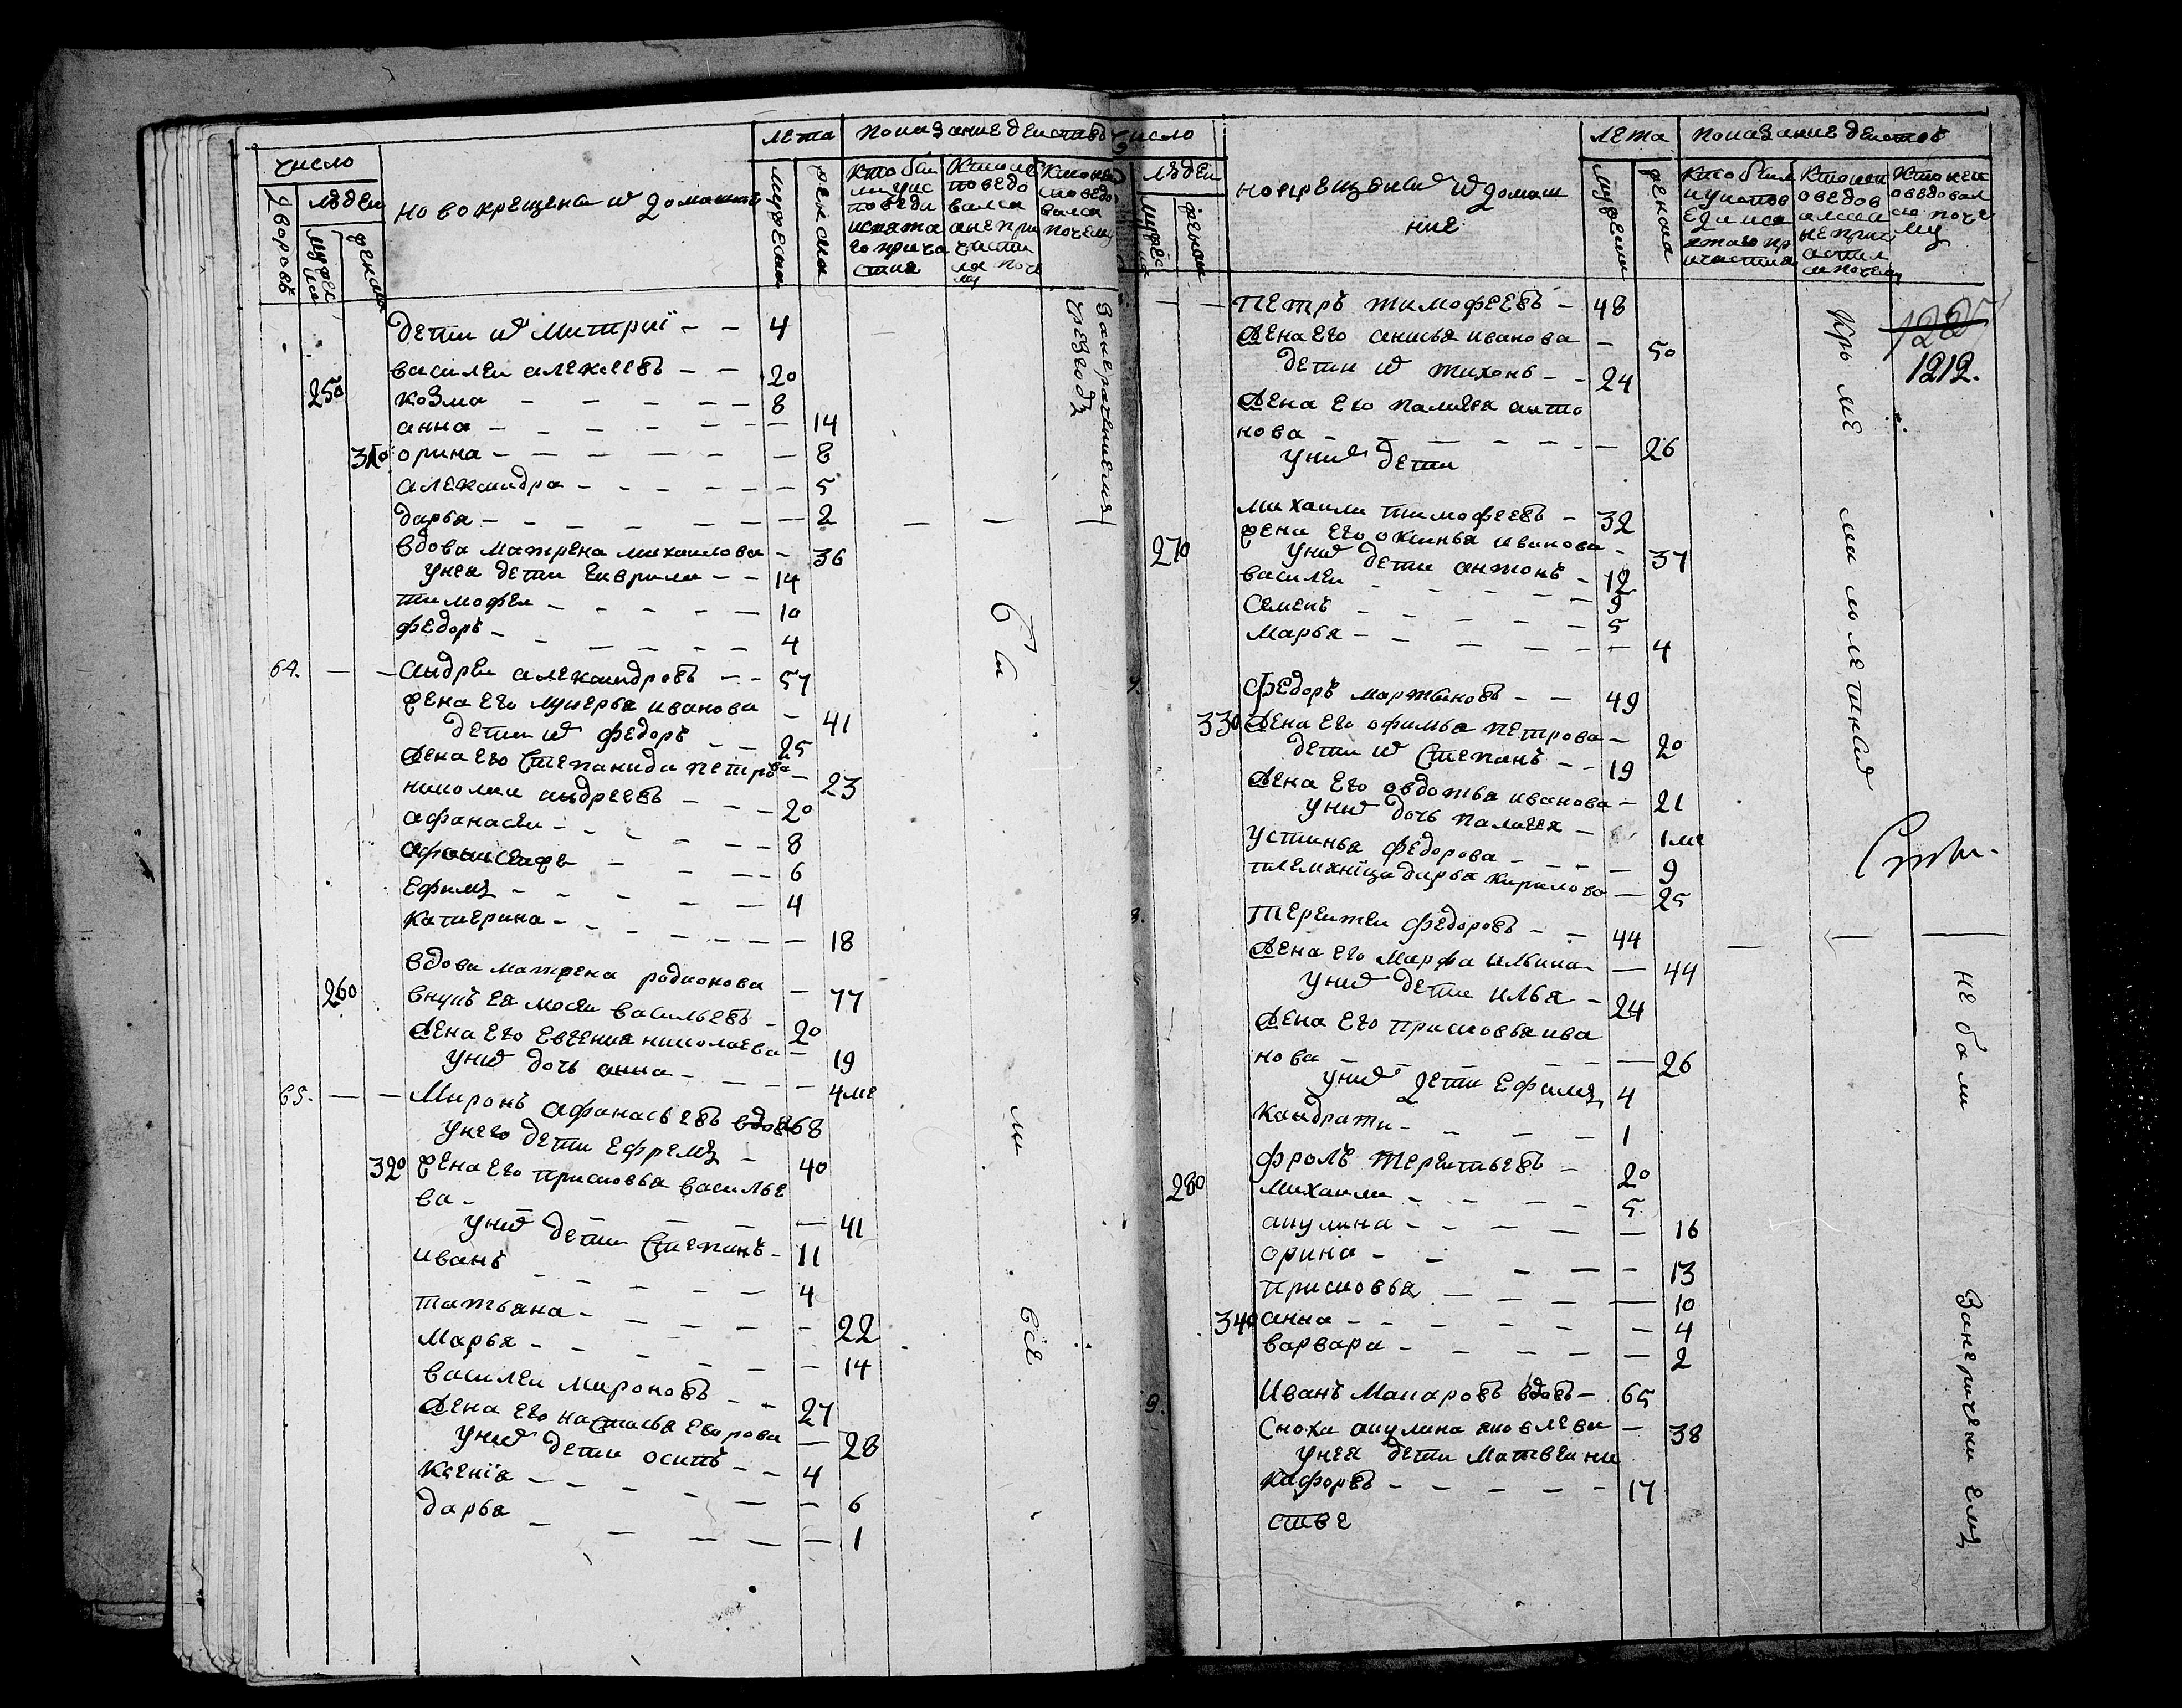 число
лета
показание деиство
дворовъ
людеи
мужеска
женска
новокрещены и домашне
мужеска
женска
кто был
и у ис
поведи
и свята
го прича
стия
кто исповедо
вался
а не при
частил
ся поче
му
кто не ис
поведо
вался
почему
дети ихъ митрiи – – 4
василеи алексеевъ – – 20
250 козма – – – – – 8
анна – – – – – – – 14
310 орина – – – – – – 8
александра – – – – – – 5
дарья – – – – – – – 2
вдова матрена михаилова – 36
у нея дети гаврила – – 14
тимофеи – – – – – 10
федоръ – – – – – – 4
64. – – андреи александровъ – – 57
жена его лукерья иванова – 41
дети ихъ федоръ – – 25
жена его степанида петрова – 23
николаи андреевъ – – – 20
афанасеи – – – – – – 8
– – – – 6
ефимъ – – – – – 4
катерина – – – – – – – 18
вдова матрена родионова – 77
260 внукъ ея мосеи васильевъ – 20
жена его евгения николаева – 19
у нихъ дочь анна – – – – 4 ме
65. – – миронъ афанасьевъ вдовъ 68
у него дети ефремъ – 40
320 жена его прасковья василье
ва – – – – – – 41
у нихъ дети степанъ – 11
иванъ – – – – – 4
татьяна – – – – – – 22
марья – – – – – – – 14
василеи мироновъ – – 27
жена его настасья егорова – 28
у нихъ дети осипъ – – 4
ксенiя – – – – – – – 6
дарья – – – – – – 1
за нерачениемъ
чрез годъ
бы
ли
все
число
людеи
мужеска
женска
новокрещены и домаш
ние
лета
мужеска
женска
показание деиство
кто был
и у испов
еди и св
ятаго пр
ичастия
кто исп
оведов
ался а
не прич
астил
ся почему
кто не исп
оведовал
ся поче
му
1225
1212.
– – петръ тимофеевъ – 48
жена его анисья иванова – 50
дети ихъ тихонъ – – 24
жена его палагея анто
нова – – – – – – – 26
у нихъ дети
михаила тимофеевъ – 32
жена его аксинья иванова – 37
270 у нихъ дети антонъ – 12
василеи – – – – – – 9
семенъ – – – – – 5
марья – – – – – – 4
федоръ мартыновъ – – 49
330 жена его офимья петрова – 20
дети ихъ степанъ – – 19
жена его овдотья иванова – 21
у нихъ дочь палагея – 1 ме
устинья федорова – – – – 9
племянiца дарья кирилова – 25
8. терентеи федоровъ – – 44
жена его марфа ильина – 44
у нихъ дети илья – 24
жена его прасковья ива
нова – – – – – – 26
у нихъ дети ефимъ 4
кандратеи – – – – 1
фролъ терентьевъ – 20
280 михаила – – – – – 5
акулина – – – – – 16
орина – – – – – 13
прасковья – – – – 10
340 анна – – – – – – – 4
варвара – – – – – – 2
9. иванъ макаровъ вдовъ – 65
сноха акулина яковлева – 38
у нея дети матвеи ни
кифоръ – – – – – 17
стве
кро ме
ма ло летныхъ
не были
за нерачениемъ